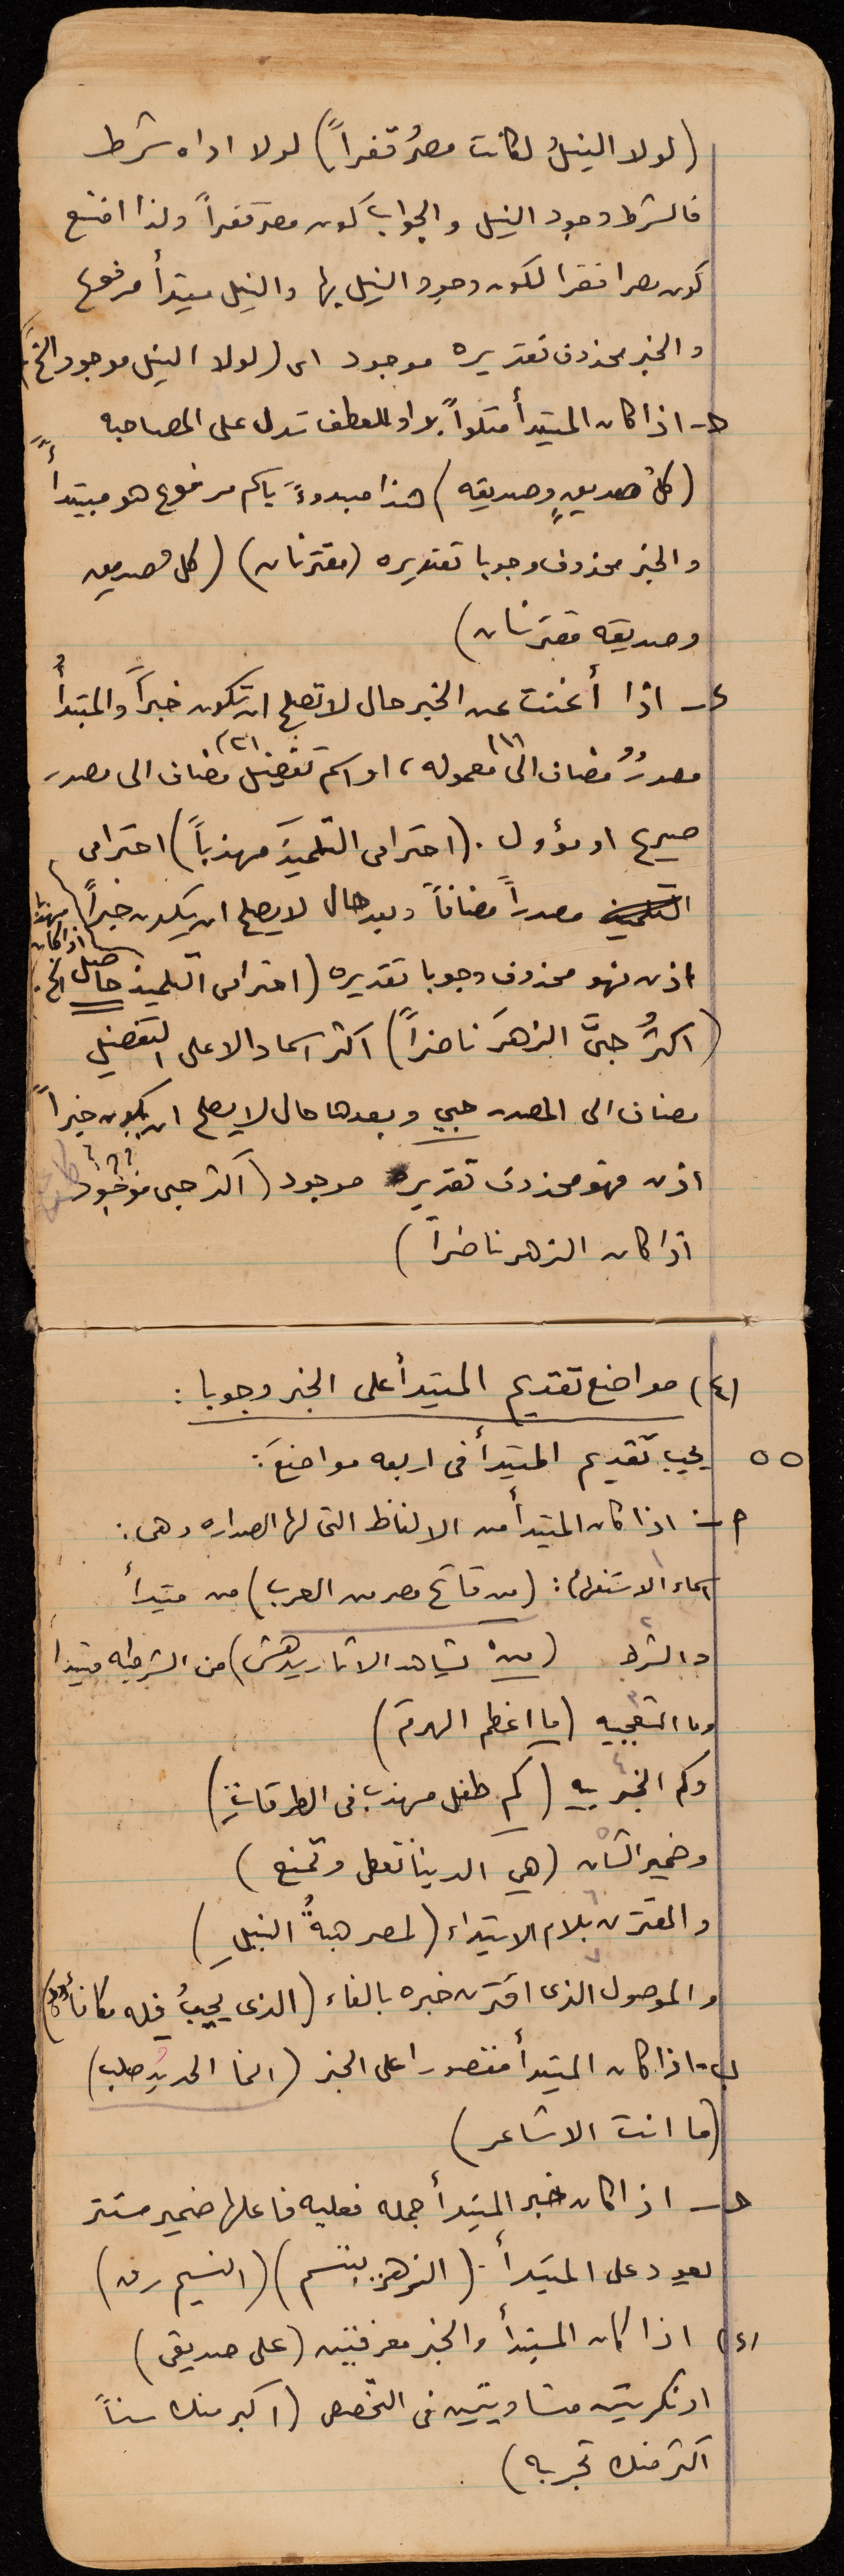 (لولا النيلُ لكانت مصرُ قفراً) لولا اداه شرط
فالشرط وجود النيل والجواب كون مصر قفراً ولذا امتنع
كون مصرا قفرا لكون وجود النيل بها والنيل مبتدأ مرفوع
والخبر محذوف تقديره موجود اى (لولا النيل موجود الخ)
حـ - اذا كان المبتدأ متلواً بواو للعطف تدل على المصاحبه
(كلُ صديقٍ وصديقه) هنا مبدوءً باسم مرفوع هو مبتدأً
والخبر محذوف وجوبا تقديره (مقترنان) (كل صديق
وصديقه مقترنان)
ء - اذا أغنت عن الخبر حال لا تصلح ان تكون خبراً والمبتدأُ
مصدرٌ مضاف الى (١) معموله، او اسم تفضيل (٢) مضاف الى مصدر
صريح او مؤول. (احترامى التلميذَ مهذباً) احترامى
مصدراً مضافاً وبعد حال لا يصلح ان يكون خبراً
اذن فهو محذوف وجوبا تقديره (احترامى التلميذ حاصل اذا كان مهذباً الخ.)
(اكثرُ حبىَّ الزهرَ ناضراً) اكثر اسما دالا على التفضيل
مضاف الى المصدر حبي وبعدها حال لا يصلح ان يكون خبراً
اذن فهو محذوف تقديره موجود (اكثر حبى موجود ؟؟؟
اذا كان الزهر ناضراً)
(٤) مواضع تقديم المبتدأ على الخبر وجوبا :
٥٥ يجب تقديم المبتدأ فى اربعه مواضعَ :
م - اذا كان المبتدأ من الالفاظ التى لها الصداره وهى :
اسماء الاستفهام ١ : (من فاتح مصر من العرب) من مبتدأ
والشرط ٢ (من يشاهد الاثار يدهش) من الشرطيه مبتدأ
وما التعجبيه ٣ (ما اعظم الهرم)
وكم الخبريه ٤ (كم طفل مهذب فى الطرقاتِ)
وضمير الشان ٥ (هي الدينا تعطى وتمنع)
والمقترن بلام الابتداء ٦ (لمصر هبةُ النيلِ)
والموصول الذى اقترن خبره بالفاء ٧ (الذى يجيبُ فله مكافأة)
ب - اذا كان المبتدأ مقصورا على الخبر (انما الحديدُ صلب)
(ما انت الا شاعر)
حـ - اذا كان خبر المبتدأ جمله فعليه فاعلها ضمير مستتر
يعود على المبتدأ. (الزهر يبتسم) (النسيم رق)
(ء) اذا كان المبتدأ والخبر معرفتين (على صديقى)
او نكرتين متساويتين فى التخصص (اكبر منك سناً
اكثر منك تجربه)